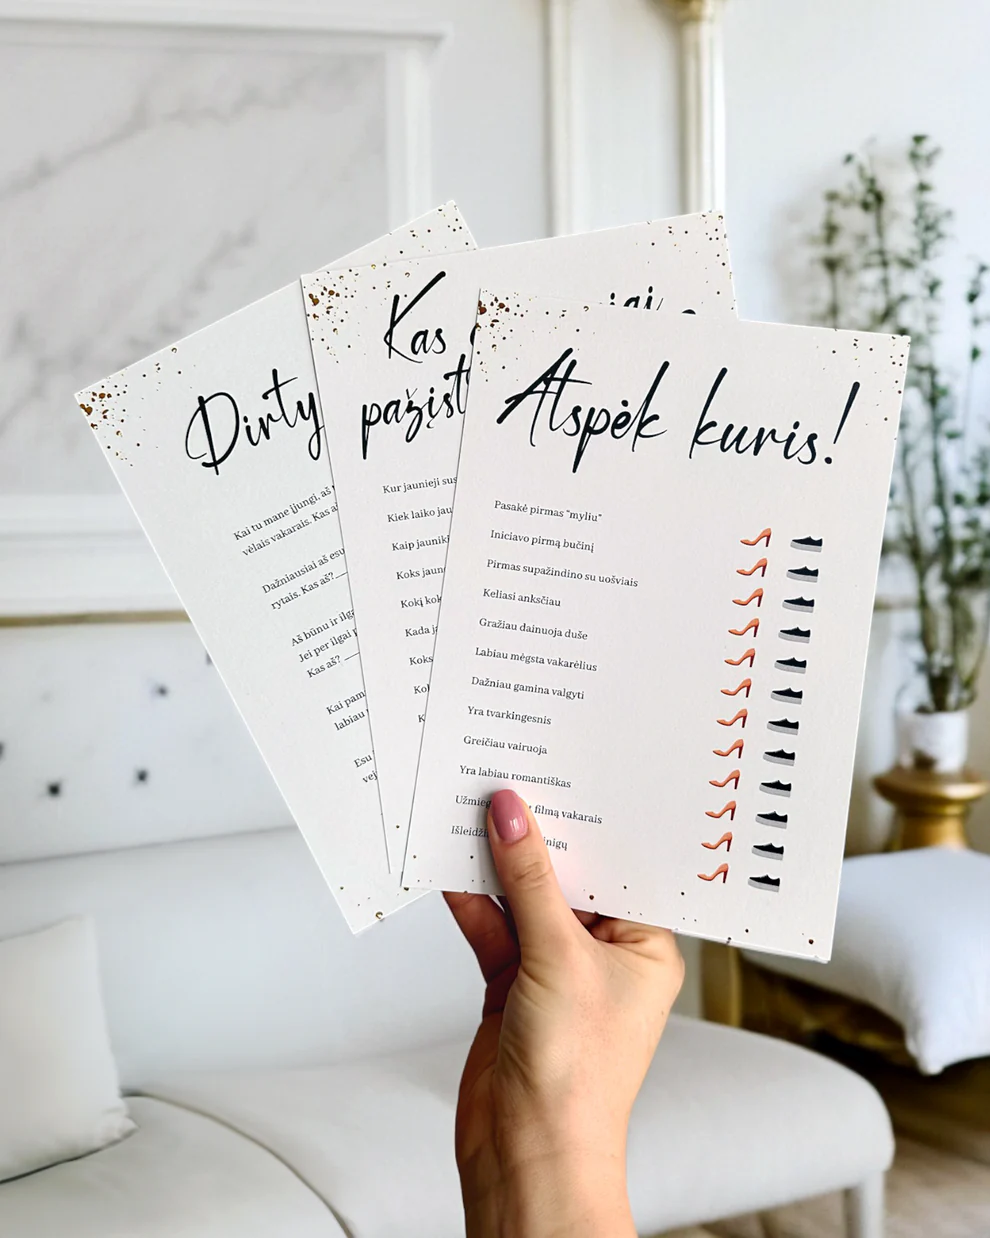 Dirty
Kai tu mane įjungi, aš
vėlais vakarais. Kas
Dažniausiai aš esu
rytais. Kas aš?
Aš būnu ir
Jei per ilgai
Kas aš?
Kai
labiau
Esu
Kas
Kur jaunieji
Kiek laiko
Kaip
Koks
Kokį
Kada
Koks
Atspėk kuris!
Pasakė pirmas "myliu"
Iniciavo pirmą bučinį
Pirmas supažindino su uošviais
Keliasi anksčiau
Gražiau dainuoja duše
Labiau mėgsta vakarėlius
Dažniau gamina valgyti
Yra tvarkingesnis
Greičiau vairuoja
Yra labiau romantiškas
filmą vakarais